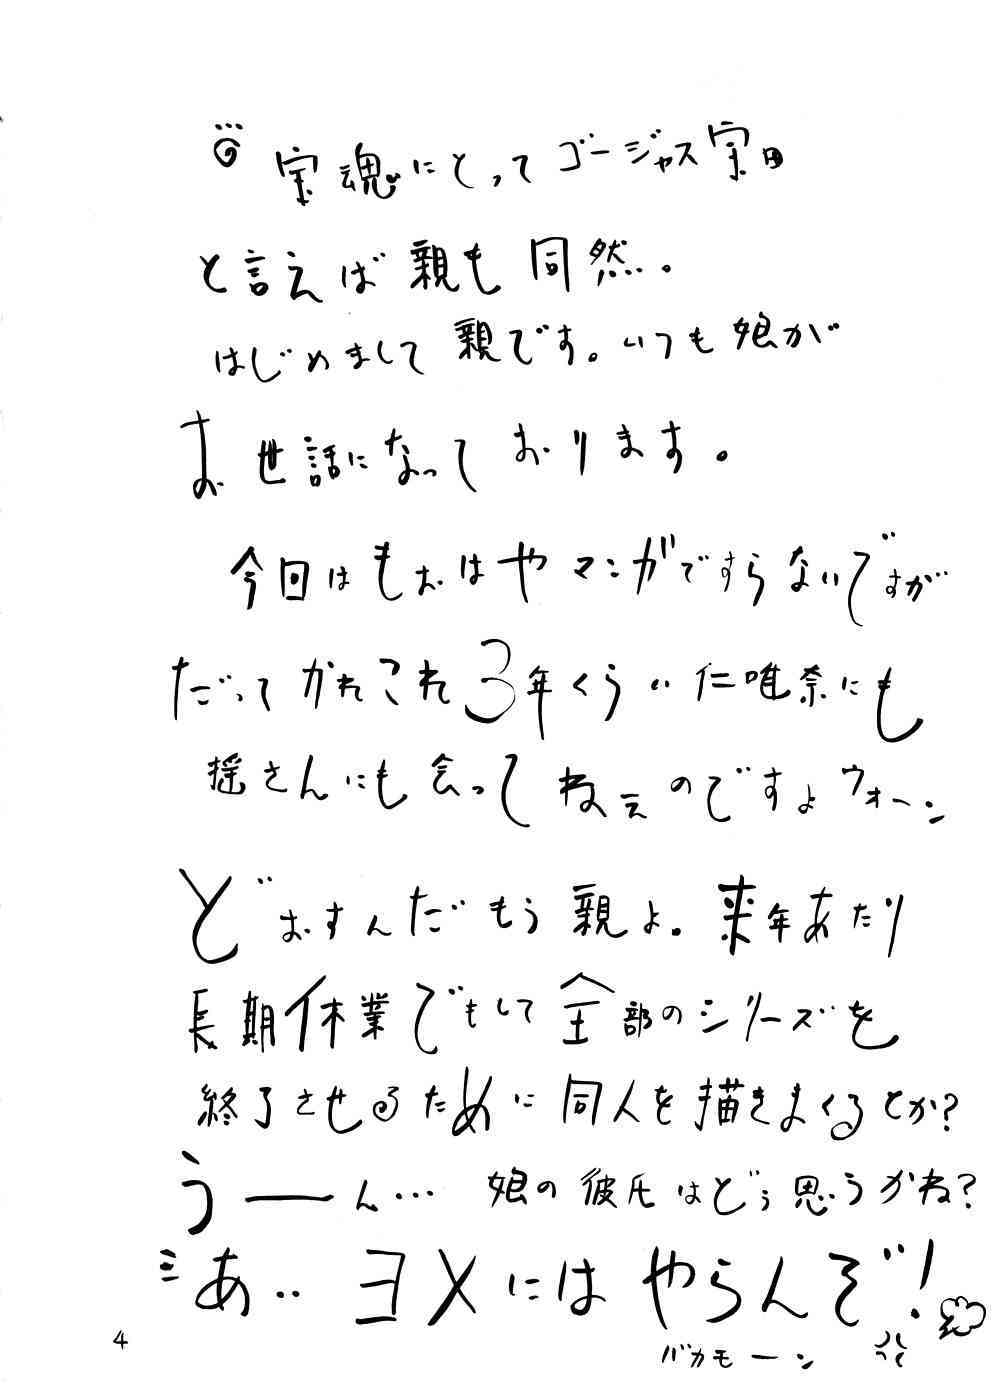 宝魂にとってゴージャス宝田
と言えば親も同然。
はじめまして親です。いつも娘が
お世話になっております。
今回はもおはやマンガですらないですが
だってかれこれ3年くらい仁唯奈にも
揺さんにも会ってねえのですよウォーン
どおすんだもう親よ。来年あたり
長期休業でもして全部のシリーズを
終了させるために同人を描きまくるとか?
うーん… 娘の彼氏はどう思うかね?
あ‥ヨメにはやらんぞ!
バカモーン
4